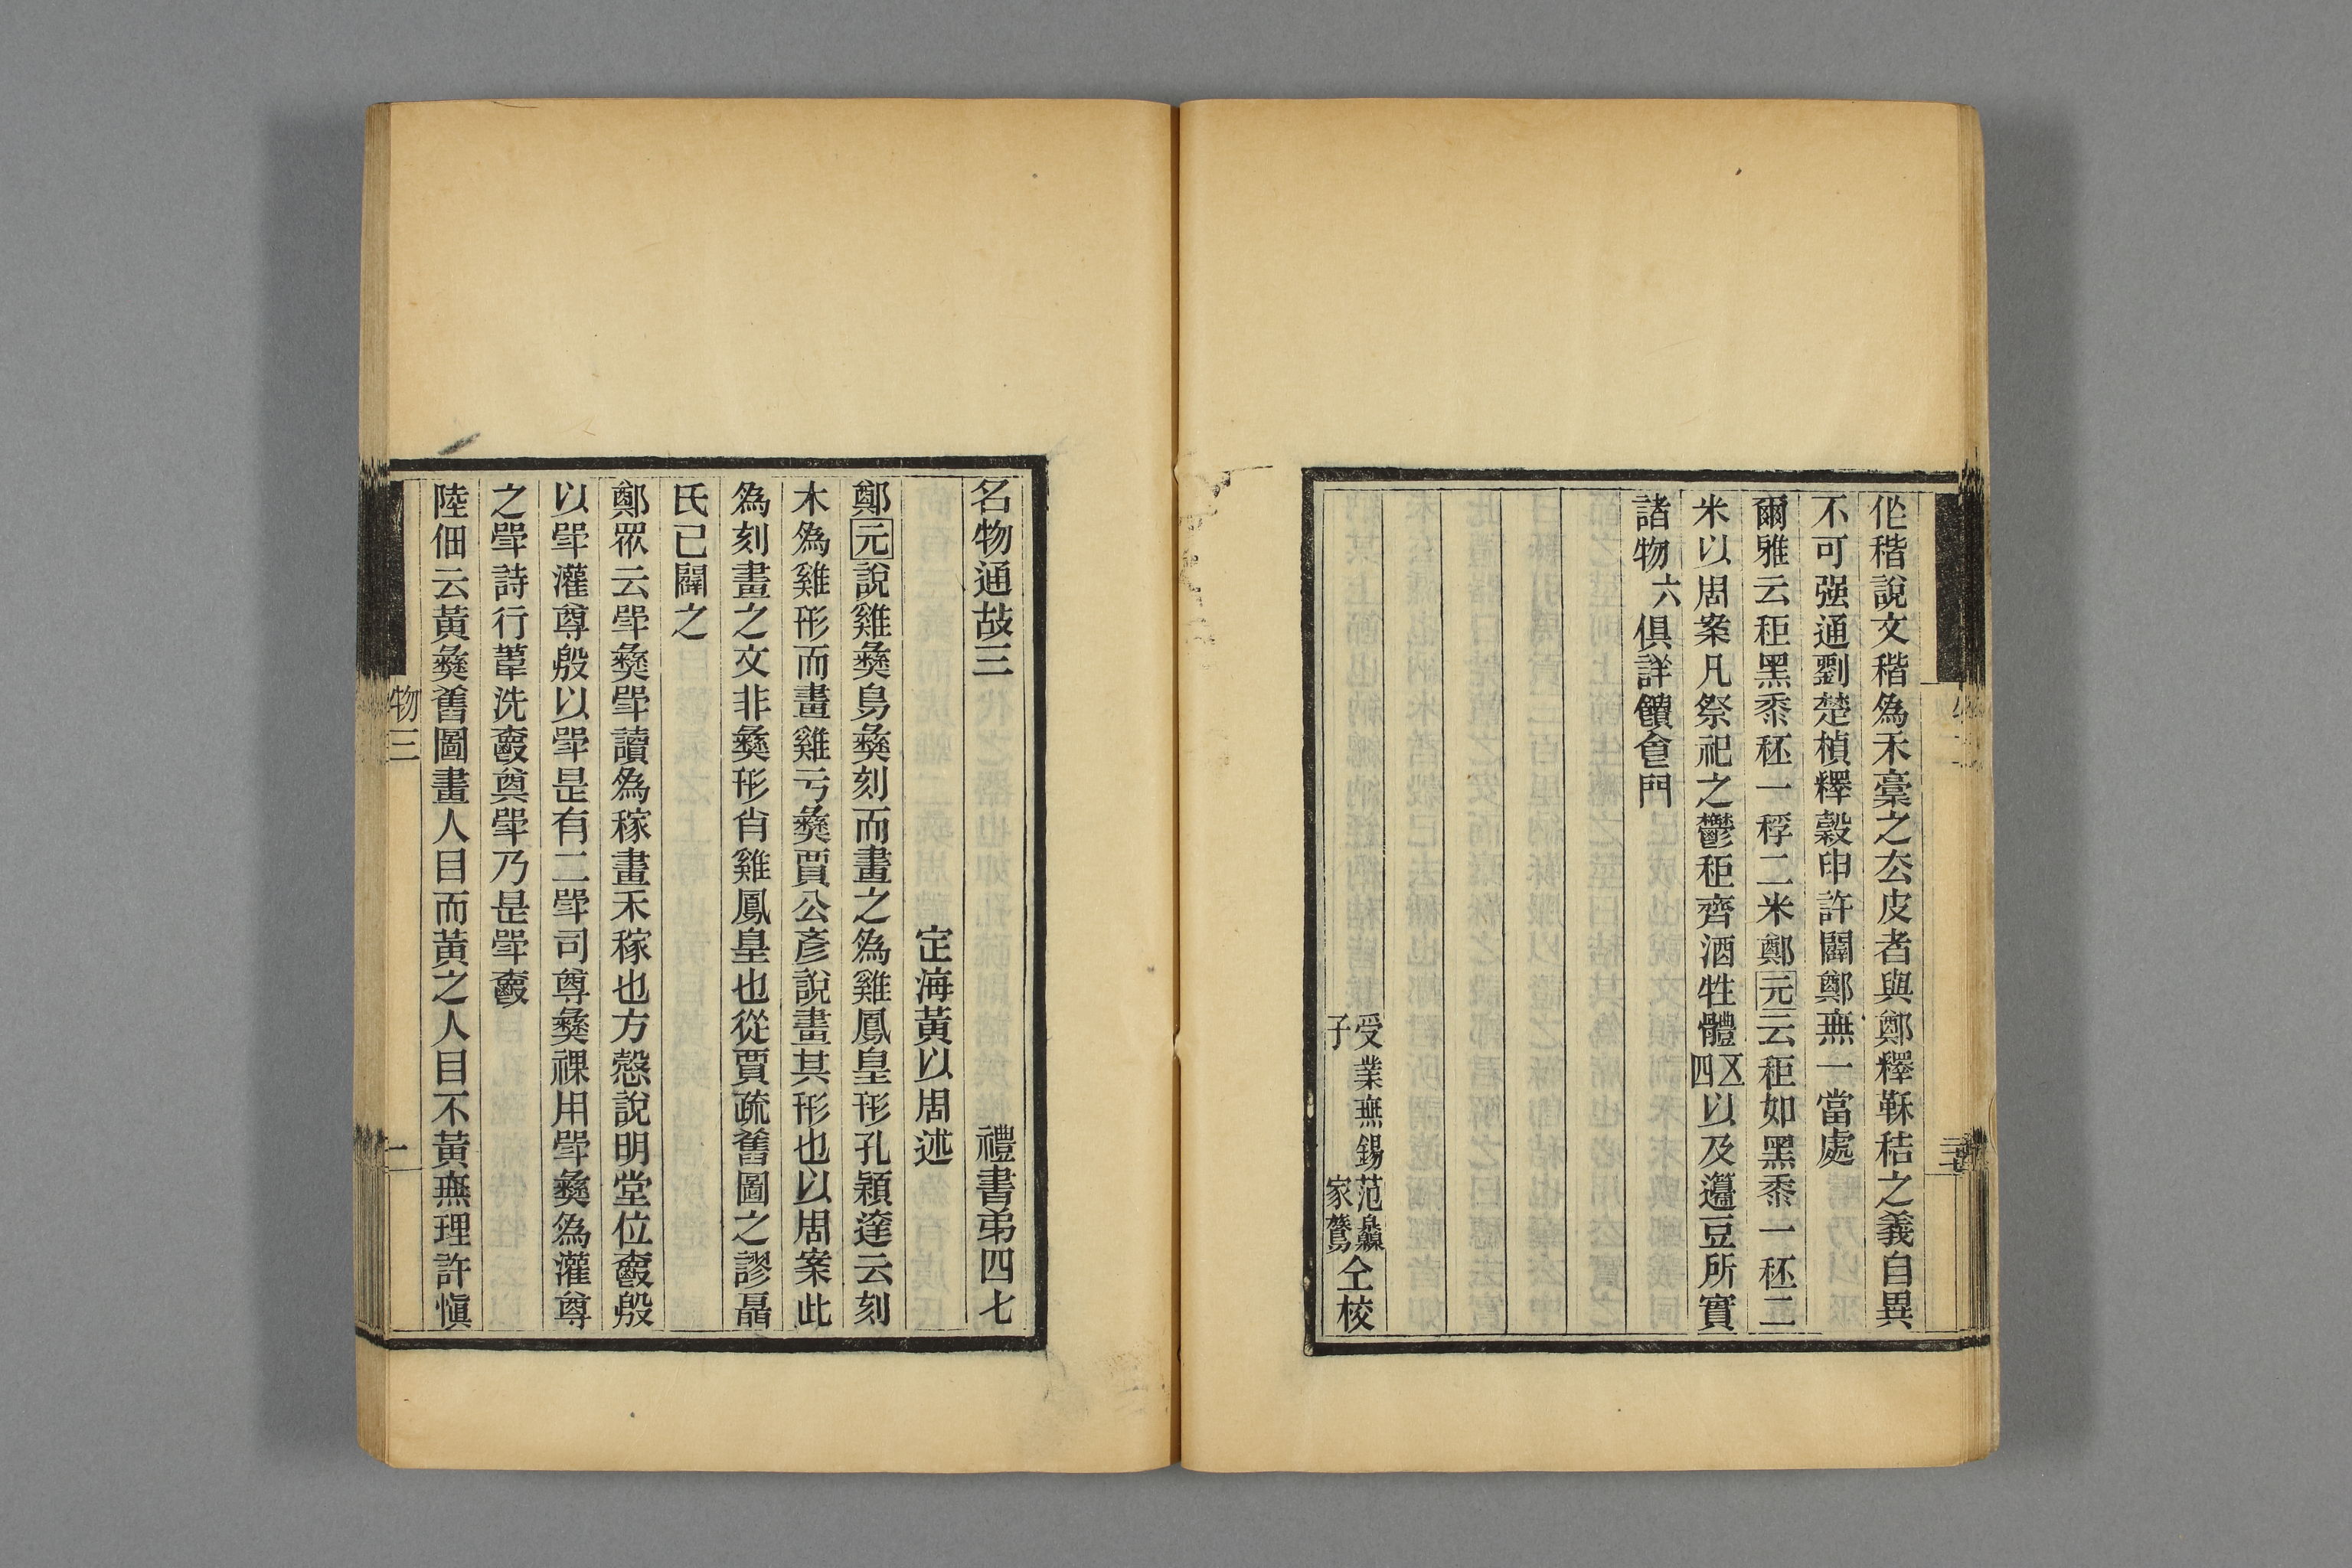 作稭說文稭爲禾槀之去皮者與鄭釋䅟秸之義自異
不可强通劉楚楨釋穀申許闢鄭無一當處
爾雅云秬黑黍秠一稃二米鄭元云秬如黑黍一秠二
米以周案凡祭祀之鬱秬齊酒牲體五四以及籩豆所實
諸物六俱詳饋食門
受業無錫范
子家
仝校
名物通故三 禮書弟四七
定海黃以周述
鄭元說雞彝鳥彝刻而畫之爲雞鳳皇形孔穎達云刻
木爲雞形而畫雞亏彝賈公彥說畫其形也以周案此
爲刻畫之文非彝形肖雞鳳皇也從賈疏舊圖之謬聶
氏已闢之
鄭眾云斝彝斝讀爲稼畫禾稼也方愨說明堂位夏殷
以斝灌尊殷以斝是有二斝司尊彝祼用斝彝爲灌尊
之斝詩行葦洗爵奠斝乃是斝爵
陸佃云黃彝舊圖畫人目而黃之人目不黃無理許愼
物三
一